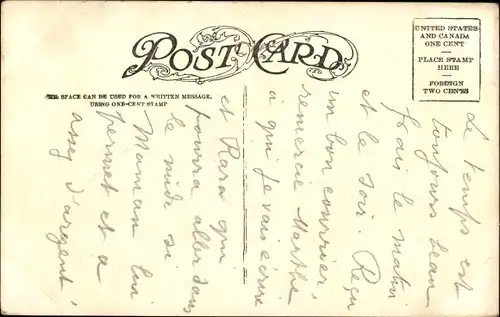 POST CARD
THE SPACE CAN BE USED FOR A WRITTEN MESSAGE,
USING ONE-CENT STAMP
UNITED STATES
AND CANADA
ONE CENT
PLACE STAMP
HERE
FOREIGN
TWO CENTS
Le temps est
toujours beau
frais le matin
et le soir. Reçu
un bon courrier,
remercie Marthe
à qui je vais écrire
et Rara qui
pourra aller dans
le midi si
Maman lui
permet et a
assez d'argent!